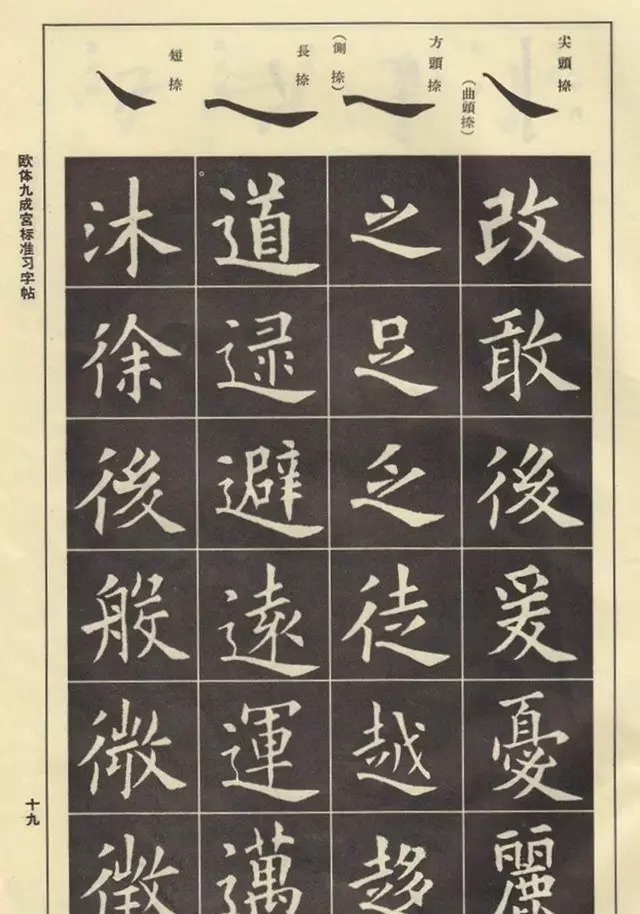 尖頭捺
(曲頭捺)
改敢後爰憂麗
方頭捺
(側捺)
之足乏徒越趍
長捺
道逮避遠運邁
短捺
沐徐後般微徵
欧体九成宫标准习字帖
十九